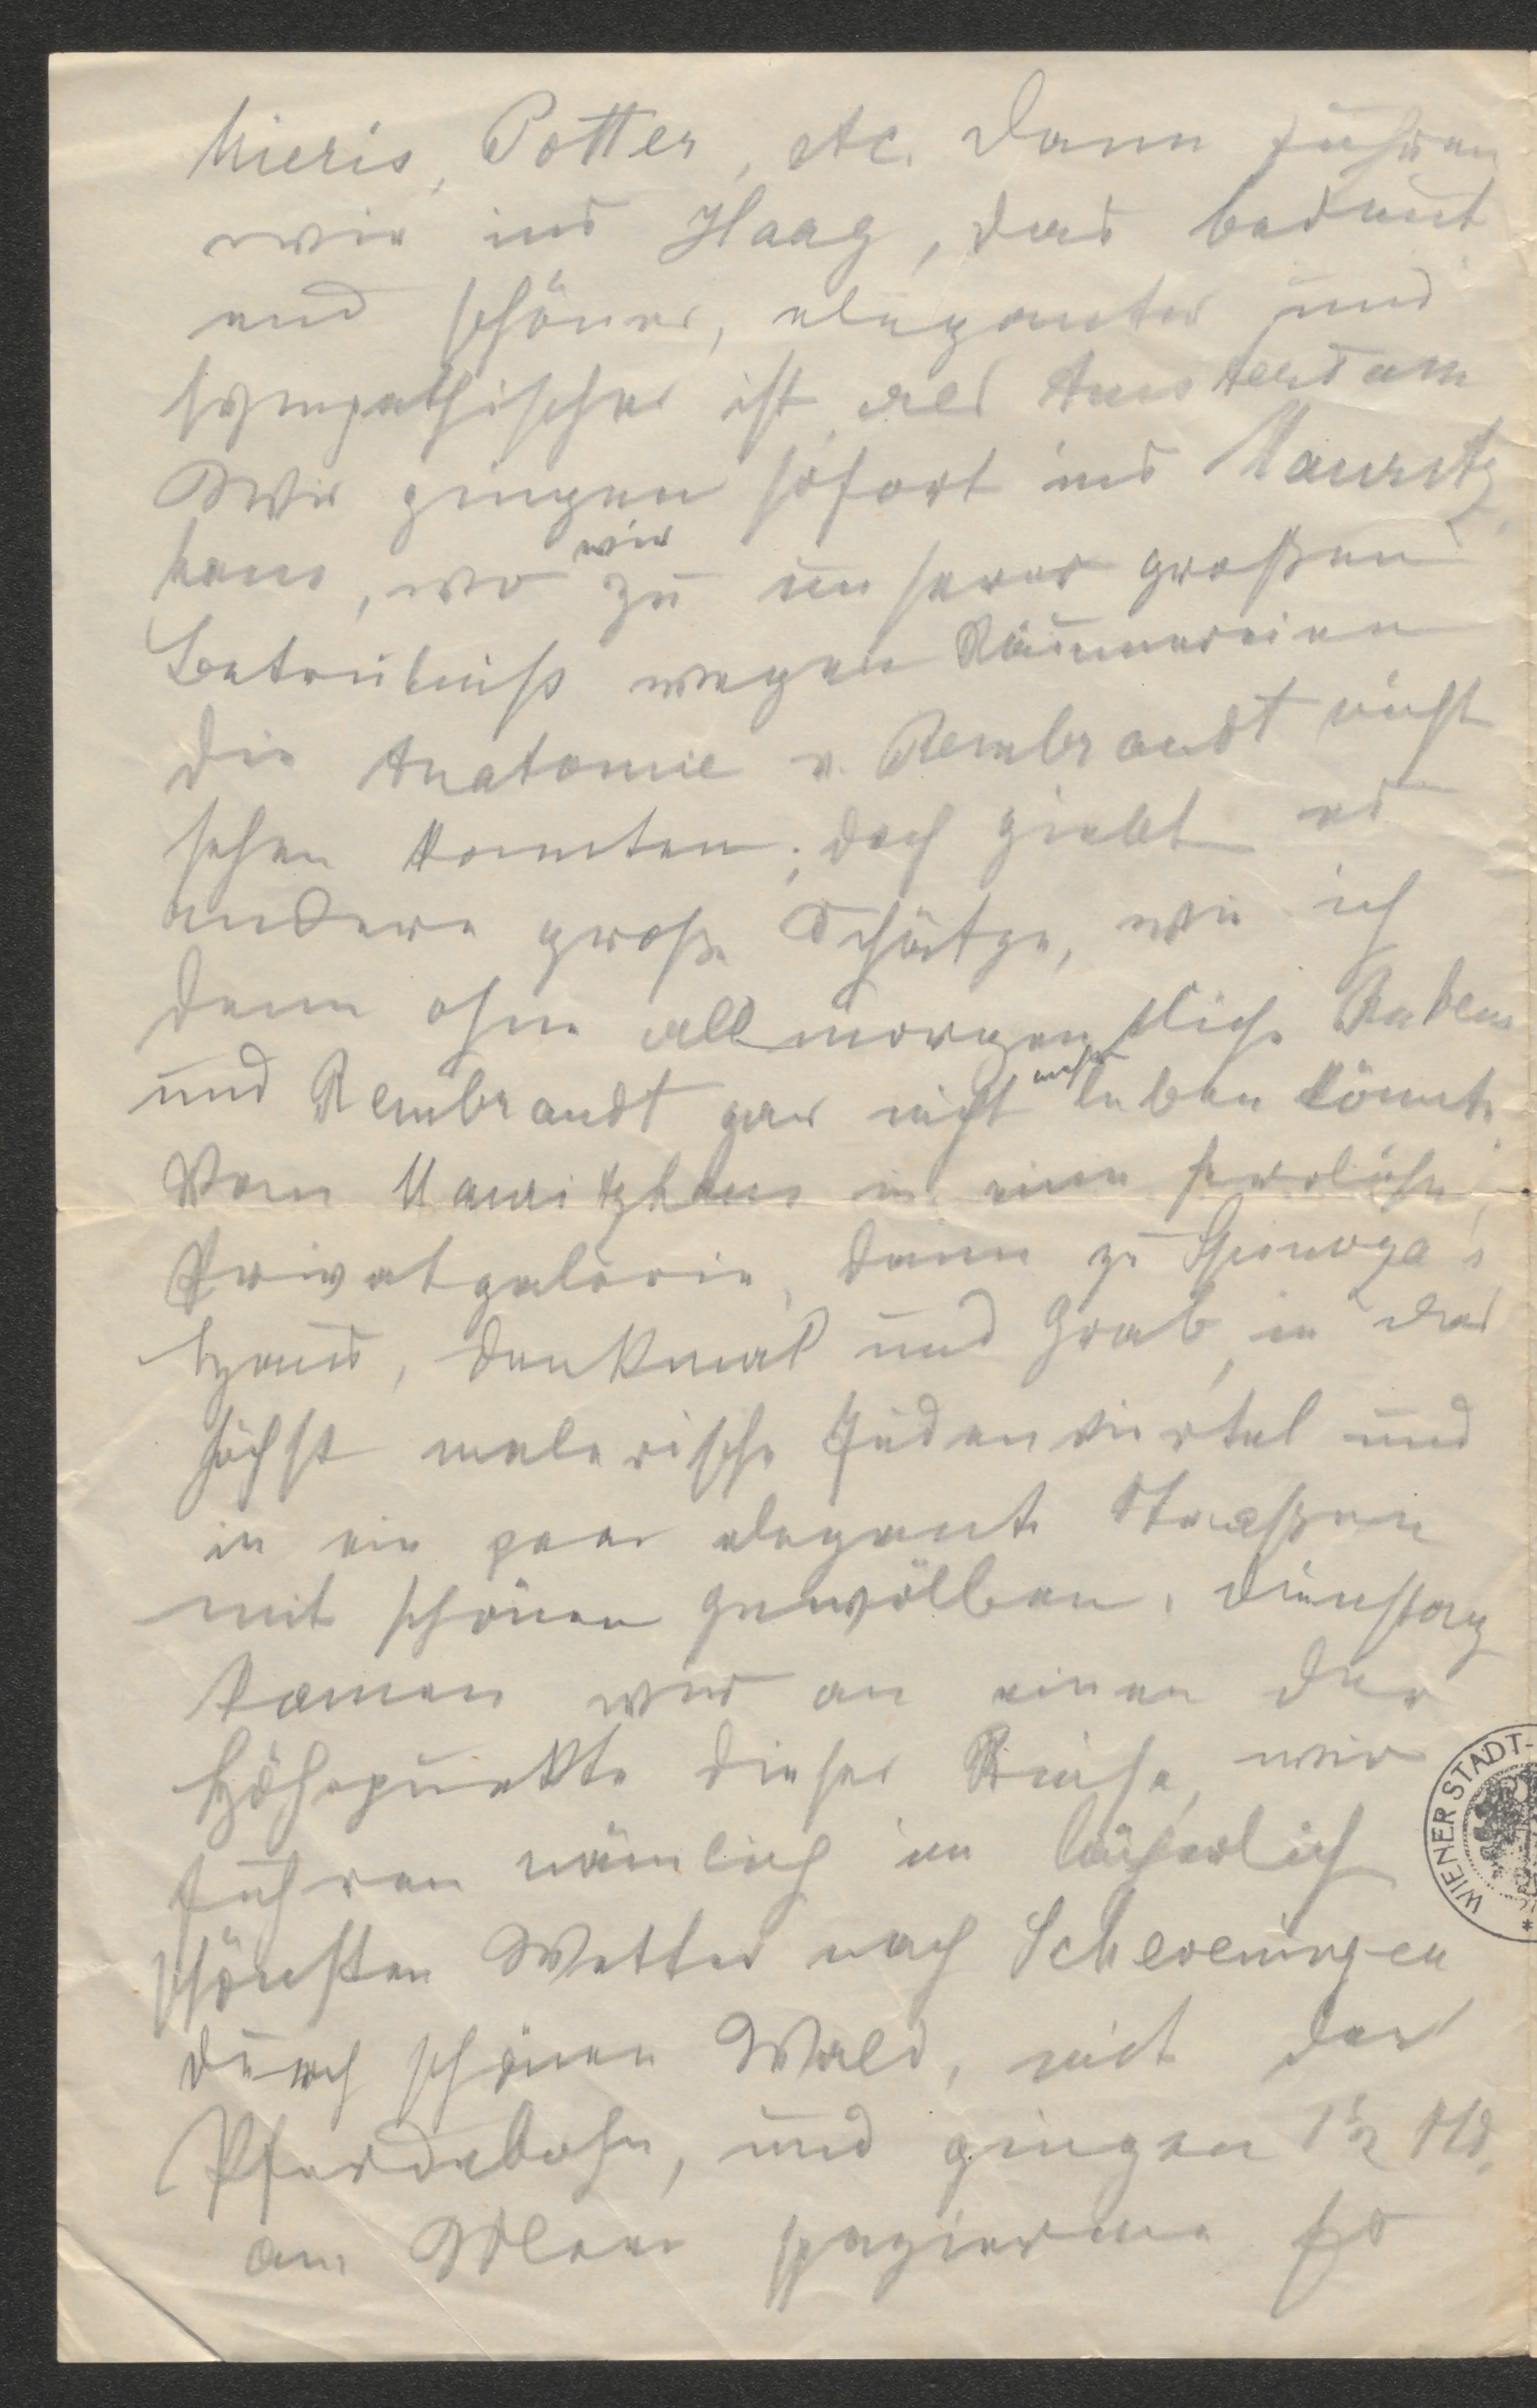 Mieris, Potter, etc. Dann fuhren
wir ins Haag, das bedeut
end schöner, eleganter und
sympathischer ist als Amsterdam
Wir gingen sofort ins Mauritz
haus, wo wir zu unserer großen
Betrübniß wegen Räumereien
die Anatomie v. Rembrandt nicht
sehen konnten; doch giebt es
andere große Schätze, wie ich
denn ohne allmorgendliche Rubens
und Rembrandt gar nicht mehr leben könnte.
Vom Mauritzhaus in eine herrliche
Privatgalerie, dann zu Spinoza's
Haus, Denkmal und Grab, in das
höchst malerische Judenviertel und
in ein paar elegante Straßen
mit schönen Gewölben. Dienstag
kamen wir an einen der
Höhepunkte dieser Reise, wir
fuhren nämlich im
schönsten Wetter nach Scheveningen
durch schönen Wald, mit der
Pferdebahn, und gingen 1½ Std.
am Meer spazieren. Es
WIENER STADT-